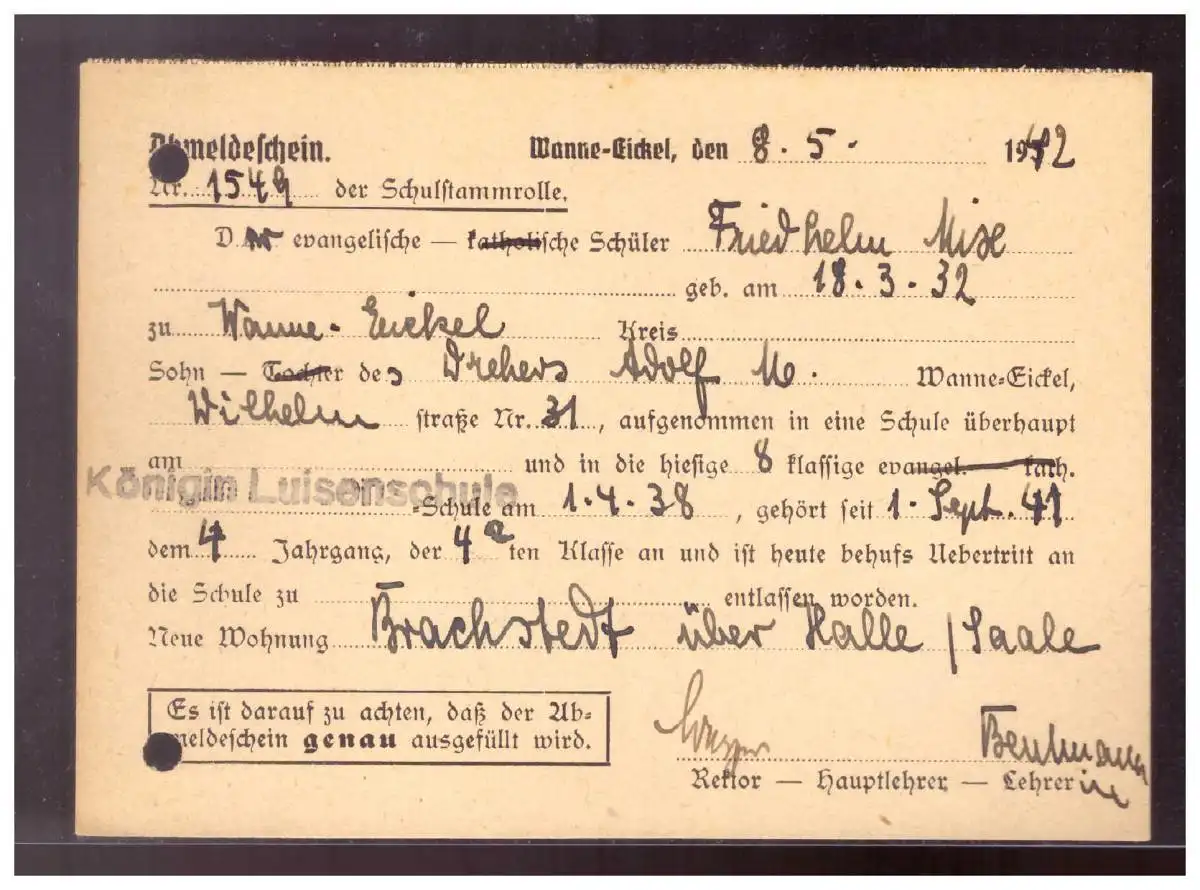 Abmeldeschein. Wanne-Eickel, den 8. 5. 1942
Nr. 1549 der Schulstammrolle.
Der evangelische — katholische Schüler Friedhelm Mise
geb. am 18. 3. 32
zu Wanne-Eickel Kreis
Sohn — Tochter des Drehers Adolf M. Wanne-Eickel,
Wilhelm straße Nr. 31, aufgenommen in eine Schule überhaupt
am und in die hiesige 8 klassige evangel. — kath.
Königin Luisenschule -Schule am 1.4.38, gehört seit 1. Sept. 41
dem 4 Jahrgang, der 4a ten Klasse an und ist heute behufs Uebertritt an
die Schule zu entlassen worden.
Neue Wohnung Brachstedt über Halle / Saale
Es ist darauf zu achten, daß der Ab-
meldeschein genau ausgefüllt wird.
Rektor — Hauptlehrer — Lehrerin